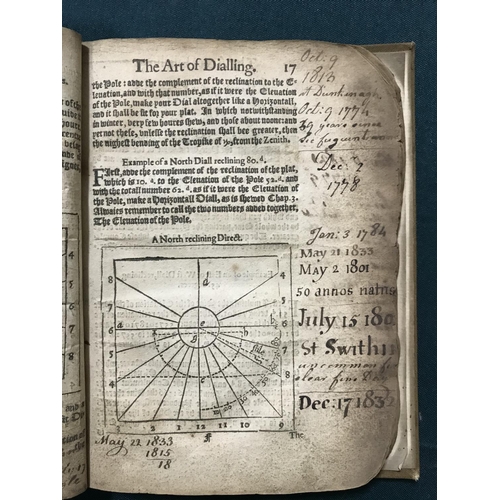 The Art of Dialling. 17
the Pole: adde the complement of the reclination to the E-
levation, and with that number, as if it were the Elevation
of the Pole, make your Dial altogether like a Horizontall,
and it shall be fit for your plat. In which notwithstanding
in winter, very few houres shewe, and those about noone: and
yet not these, unlesse the reclination shall bee greater, then
the nighest bending of the Tropike of ♑ from the Zenith.
Example of a North Diall reclining 80. d.
First, adde the complement of the reclination of the plat,
which is 10. d. to the Elevation of the Pole 52. d. and
with the totall number 62. d. as if it were the Elevation of
the Pole, make a Horizontall Diall, as is shewed Chap. 3.
Alwaies remember to call the two numbers added together,
The Elevation of the Pole.
A North reclining Direct.
8 d 4
7 5
6 a e b 6
g
5 7
4 8
3 2 1 12 11 10 9
The
May 22 1833
1815
18
Oct. 9
1813
at
Oct. 9 1774
39 years since
Dec. 7
1778
Jan. 3 1784
May 21 1833
May 2 1801
50 annos natus
July 15 180
St Swithi
uncommon
clear fine
Dec. 17 183